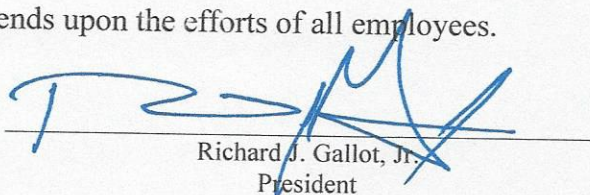 ends upon the efforts of all employees.
Richard J. Gallot, Jr.
President